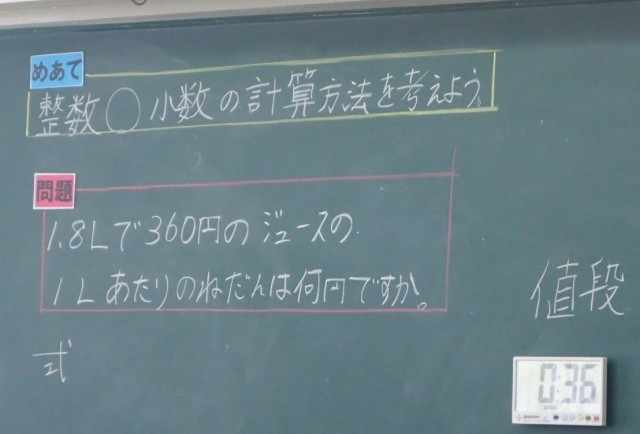 めあて
整数○小数の計算方法を考えよう。
問題
1.8Lで360円のジュースの
1Lあたりのねだんは何円ですか。
値段
式
0:36